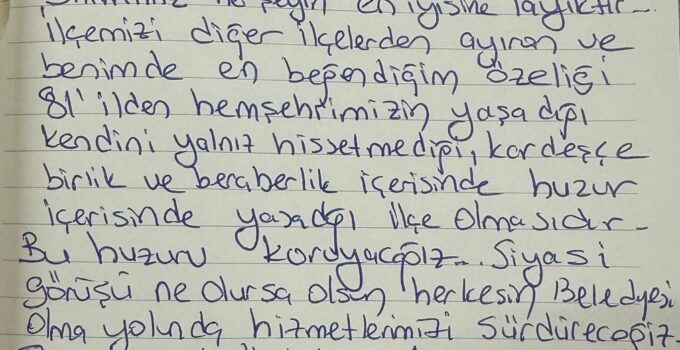 ne şeyin en iyisine layıktır...
ilçemizi diğer ilçelerden ayıran ve
benimde en beğendiğim özeliği
81'ilden hemşehrimizin yaşadığı
kendini yalnız hissetmediği, kardeşçe
birlik ve beraberlik içerisinde huzur
içerisinde yaşadığı ilçe olmasıdır.
Bu huzuru koruyacağız... Siyasi
görüşü ne olursa olsun herkesin Beledyesi
Olma yolunda hizmetlerimizi sürdüreceğiz.